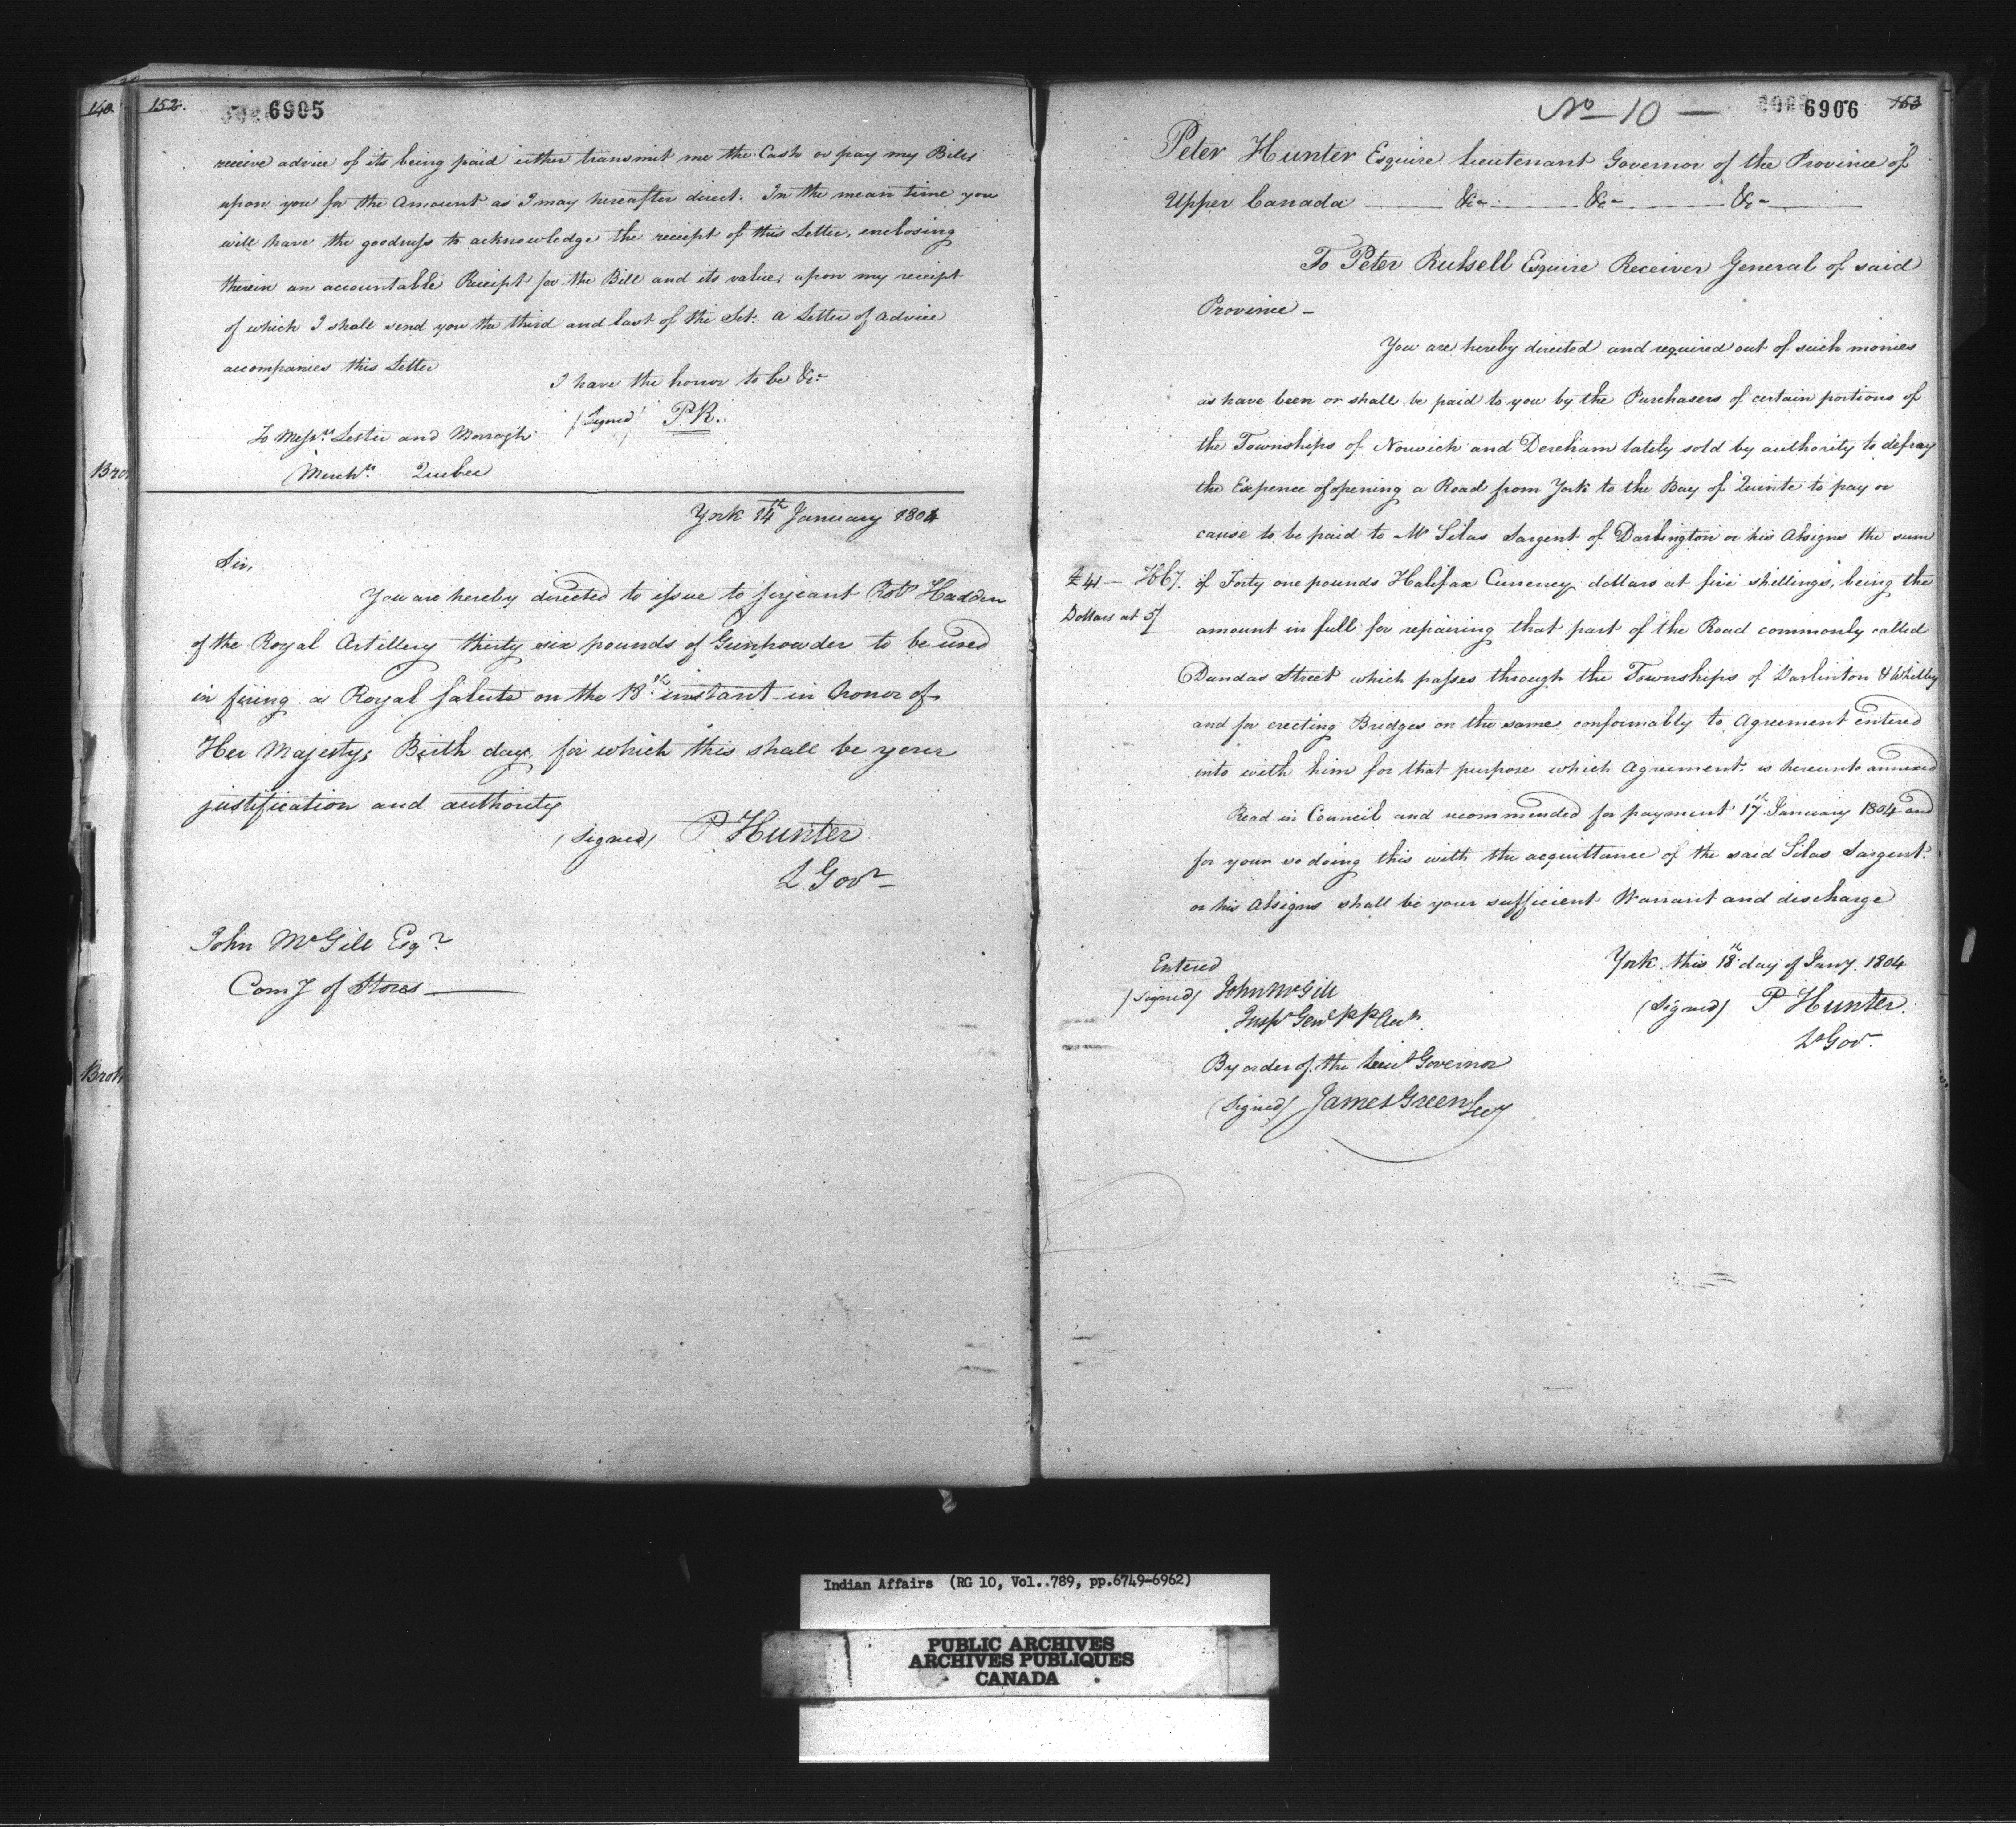 140.
152.
6905
receive advice of its being paid either transmit me the Cash or pay my Bills
upon you for the Amount as I may hereafter direct. In the mean time you
will have the goodness to acknowledge the receipt of this Letter, enclosing
therein an accountable Receipt for the Bill and its value, upon my receipt
of which I shall send you the third and last of the Set. a Letter of Advice
accompanies this Letter
I have the honor to be &c.
(Signed) PR.
To Messrs. Lester and Morrogh
Merchts. Quebec
York 14th January 1804
Sir,
You are hereby directed to issue to serjeant Robt Hadden
of the Royal Artillery thirty six pounds of Gunpowder to be used
in firing a Royal salute on the 18th instant in honor of
Her Majestys Birth day, for which this shall be your
justification and authority
(Signed) P Hunter
L Govr
John McGill Esqr
Comy of Stores
No 10
6906
153
Peter Hunter Esquire lieutenant Governor of the Province of
Upper Canada &c &c &c
To Peter Russell Esquire Receiver General of said
Province
You are hereby directed and required out of such monies
as have been or shall be paid to you by the Purchasers of certain portions of
the Townships of Norwich and Dereham lately sold by authority to defray
the Expence of opening a Road from York to the Bay of Quinte to pay or
cause to be paid to Mr Silas Sargent of Darlington or his Assigns the sum
£41 — H. Cy. of Forty one pounds Halifax Currency dollars at five shillings, being the
Dollars at 5/ amount in full for repairing that part of the Road commonly called
Dundas Street which passes through the Townships of Darlinton & Whitby
and for erecting Bridges on the same conformably to Agreement entered
into with him for that purpose which Agreement is hereunto annexed
Read in Council and recommended for payment 17th January 1804 and
for your so doing this with the acquittance of the said Silas Sargent
or his Assigns shall be your sufficient Warrant and discharge
York this 18th day of Jany. 1804
Entered
(Signed) John McGill
Inspr Genl PP Acts.
(Signed) P Hunter.
Lt Govr
By order of the Lieut Governor
(Signed) James Green Secy
Indian Affairs (RG 10, Vol..789, pp.6749-6962)
PUBLIC ARCHIVES
ARCHIVES PUBLIQUES
CANADA